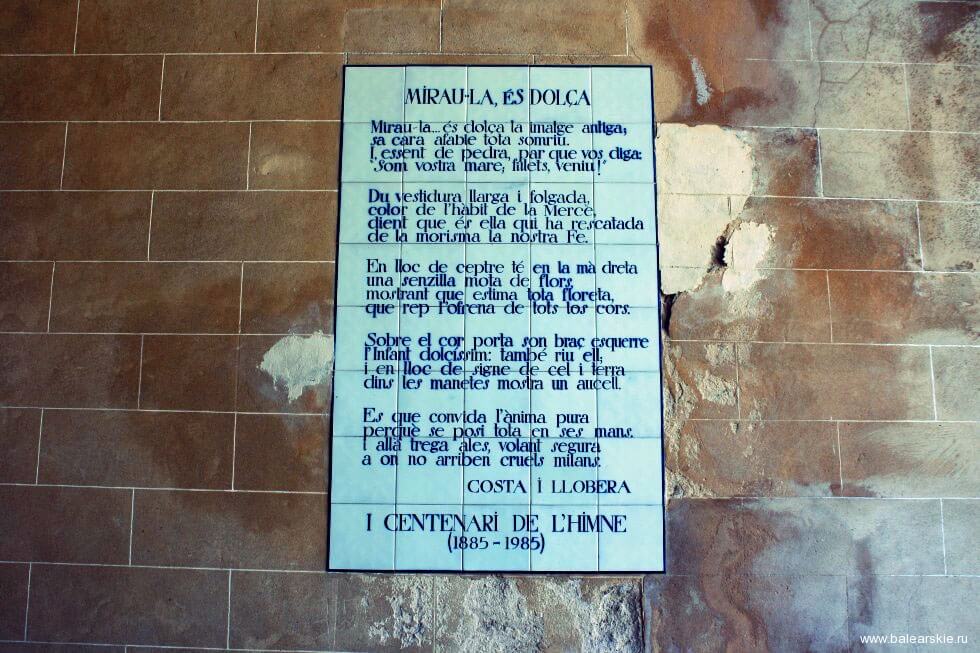 MIRAU-LA, ÉS DOLÇA
Mirau-la... és dolça la imatge antiga;
sa cara afable tota somriu.
I, essent de pedra, par que vos diga:
"Som vostra mare; fillets, veniu!"
Du vestidura llarga i folgada,
color de l'hàbit de la Mercè,
dient que és ella qui ha rescatada
de la morisma la nostra Fe.
En lloc de ceptre té en la mà dreta
una senzilla mota de flors,
mostrant que estima tota floreta,
que rep l'ofrena de tots los cors.
Sobre el cor porta son braç esquerre
l'Infant dolcíssim: també riu ell;
i en lloc de signe de cel i terra
dins les manetes mostra un aucell.
Es que convida l'ànima pura
perquè se posi tota en ses mans.
i allà trega ales, volant segura
a on no arriben cruels milans.
COSTA I LLOBERA
I CENTENARI DE L'HIMNE
(1885 - 1985)
www.balearskie.ru